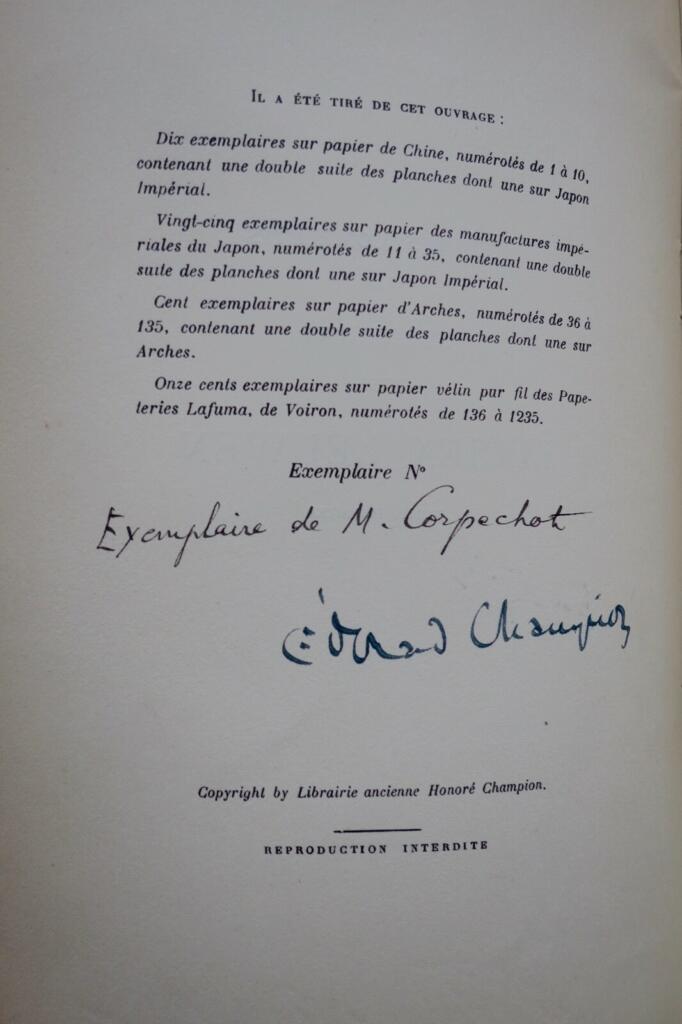 Il a été tiré de cet ouvrage :
Dix exemplaires sur papier de Chine, numérotés de 1 à 10,
contenant une double suite des planches dont une sur Japon
Impérial.
Vingt-cinq exemplaires sur papier des manufactures impé-
riales du Japon, numérotés de 11 à 35, contenant une double
suite des planches dont une sur Japon Impérial.
Cent exemplaires sur papier d'Arches, numérotés de 36 à
135, contenant une double suite des planches dont une sur
Arches.
Onze cents exemplaires sur papier vélin pur fil des Pape-
teries Lafuma, de Voiron, numérotés de 136 à 1235.
Exemplaire N°
Exemplaire de M. Corpechot
Édouard Champion
Copyright by Librairie ancienne Honoré Champion.
REPRODUCTION INTERDITE